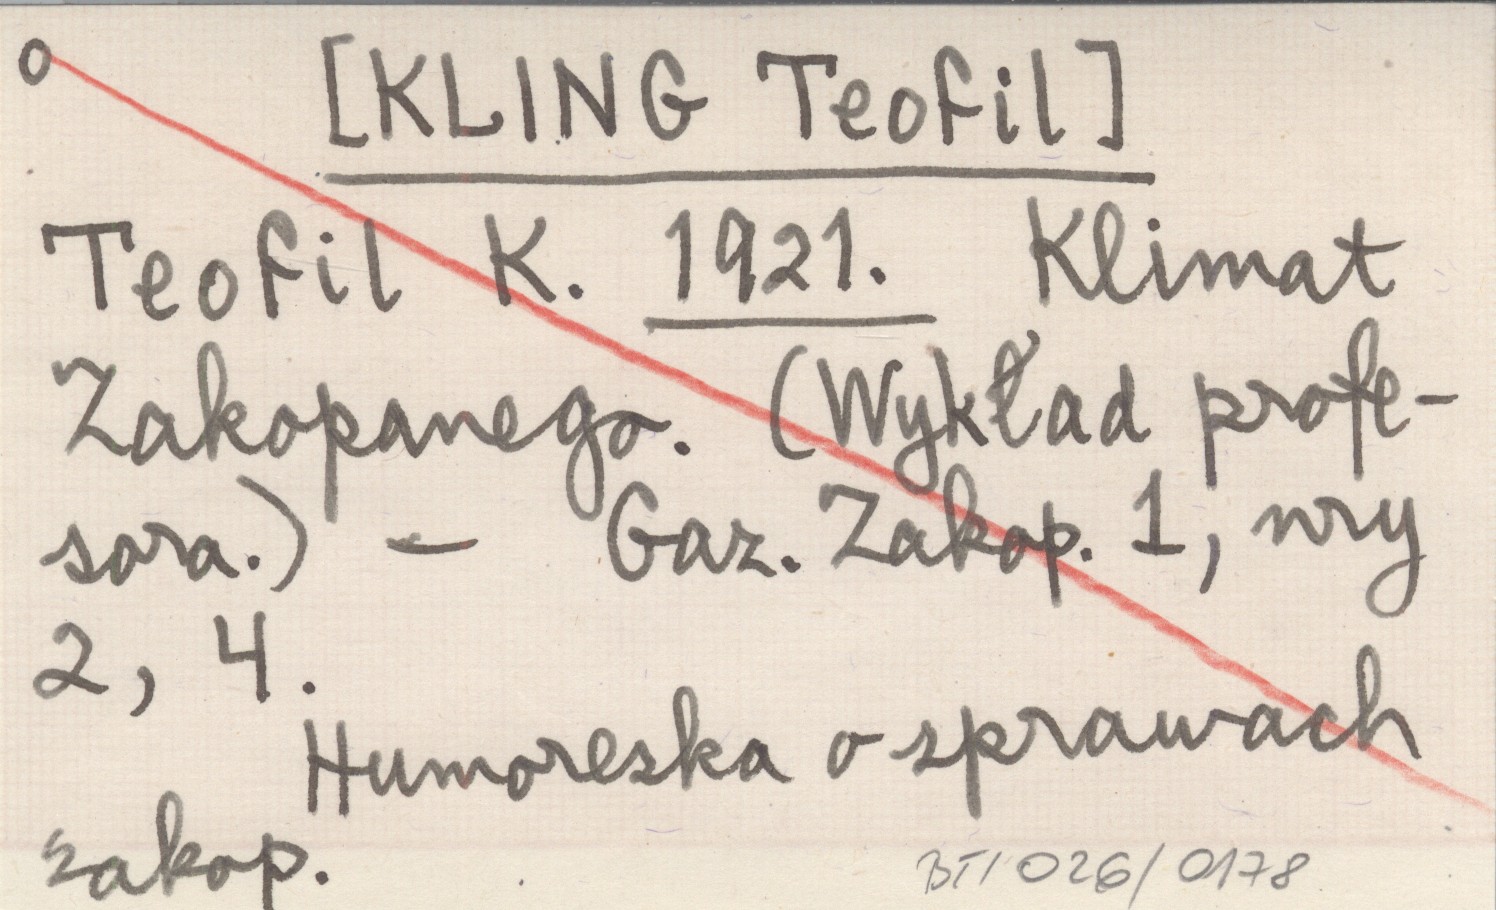 o [KLING Teofil]
Teofil K. 1921. Klimat
Zakopanego. (Wykład profe-
sora.) — Gaz. Zakop. 1, nry
2, 4.
Humoreska o sprawach
zakop.
BTI 026/0178